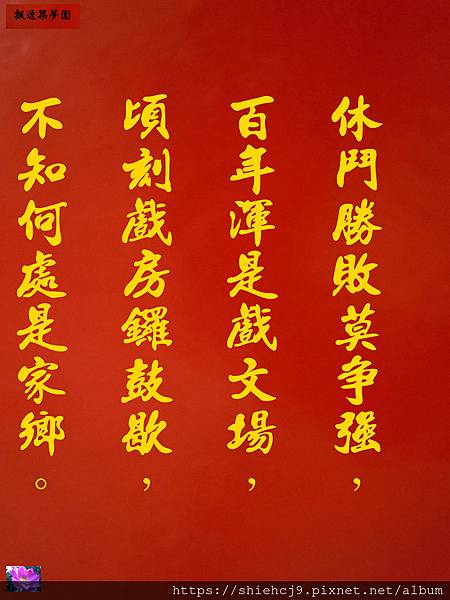 飄逸集夢園
休鬥勝敗莫爭強，
百年渾是戲文場，
頃刻戲房鑼鼓歇，
不知何處是家鄉。
https://shiehcj9.pixnet.net/album